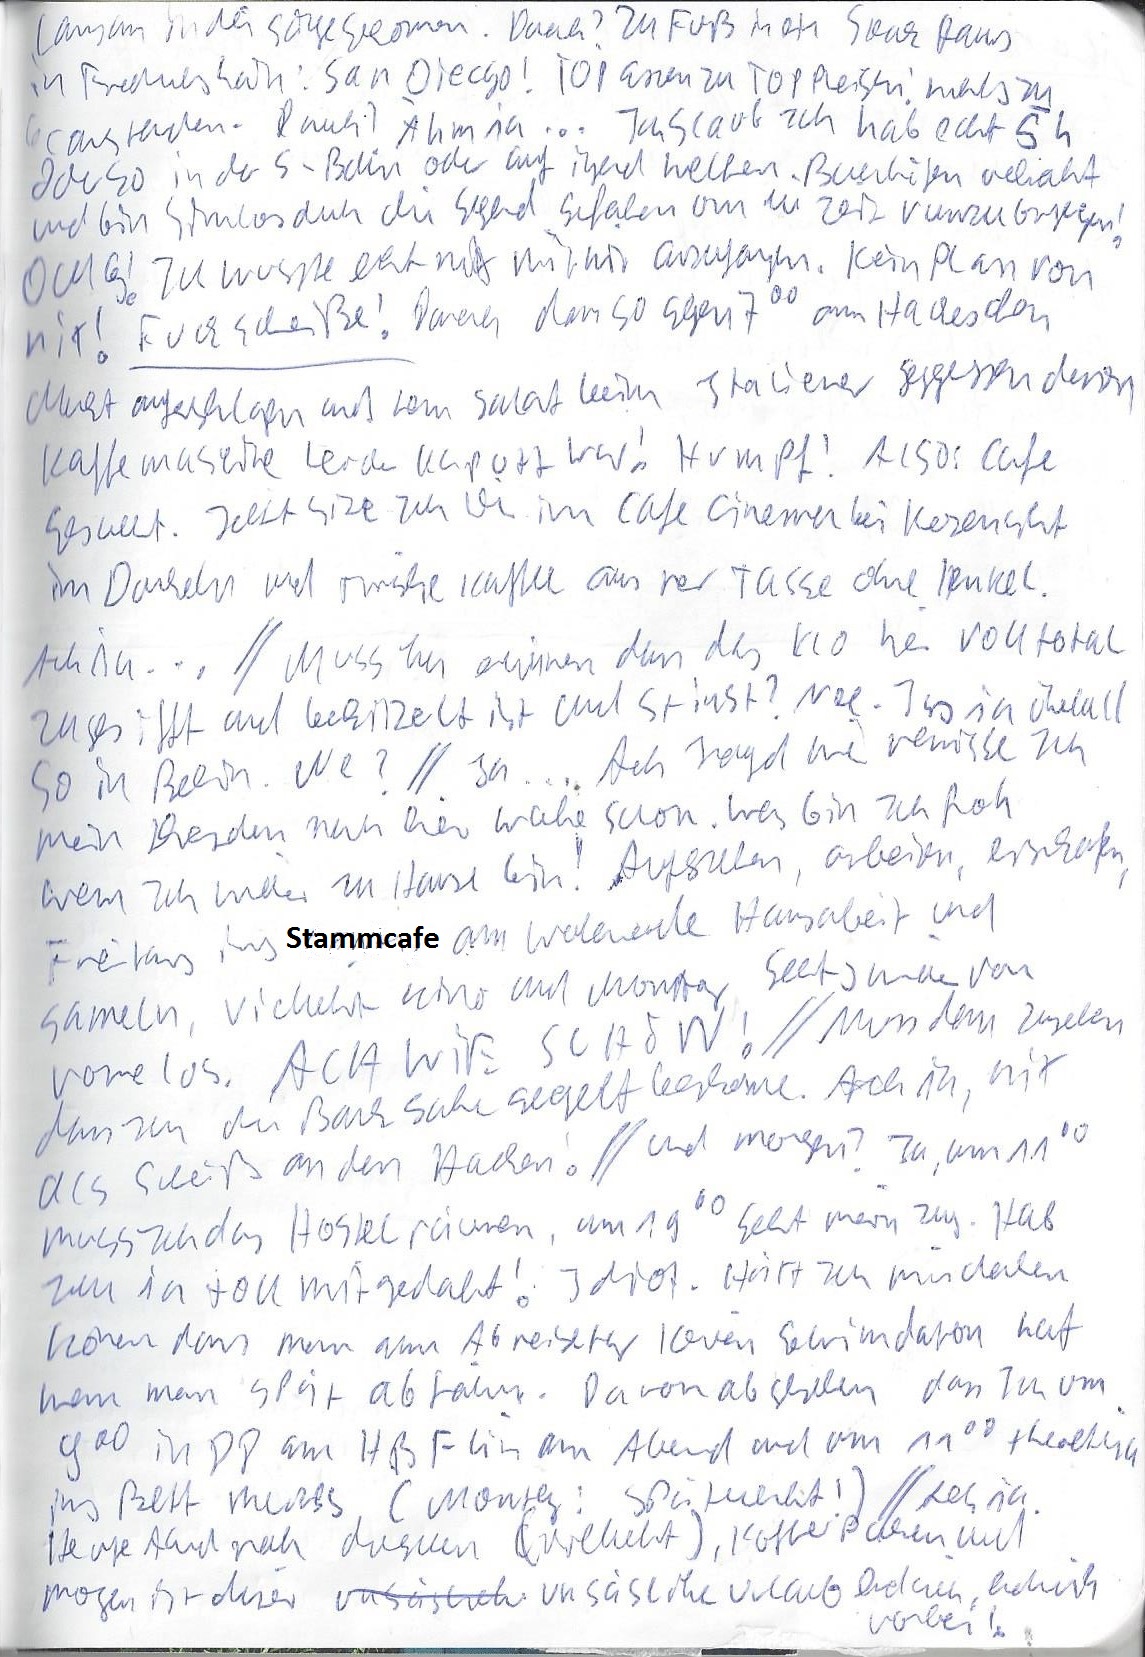 in die gänge gekommen. Danach? Zu Fuß in ein Steak Haus
in Friedrichshain: San Diego! TOP essen zu TOP Preisen!
Danach? Ähm ja... Ich glaub ich hab echt 5 h
oder so in der S-Bahn oder auf irgend welchen Bahnhöfen
und bin sinnlos durch die Gegend gefahren um die Zeit rumzubringen!
OMG! Ich wusste echt nix mit mir anzufangen. Kein Plan von
nix! Fuck scheiße! Danach dann so gegen 7 00 am Hackeschen
Markt angeschlagen und salat beim Italiener gegessen deren
Kaffemaschine leider kaputt war! Humpf! Also: Cafe
gesucht. Jetzt sitze ich hier im Cafe Cinema bei Kerzenlicht
im Dunkeln und trinke kaffee aus ner Tasse ohne Henkel.
Ach ja... // Muss ich erwähnen dass das Klo hier voll total
zugesifft und bekritzelt ist und stinkt? Nee. Iss ja überall
so in Berlin. Ne? // Ja.... Ach irgend wie vermisse ich
mein Dresden nach einer Woche schon. Was bin ich froh
wenn ich wieder zu Hause bin! Aufstehen, arbeiten, einschlafen,
Freitags ins Stammcafe am wochenende Hausarbeit und
gameln, vielleicht kino und Montag geht's wieder von
vorne los. ACH WIE SCHÖN! // Muss dann zusehen
dass ich die Bank Sache geregelt bekomme. Ach ja, mit
all's Scheiß an den Hacken! // Und morgen? Ja, um 11 00
muss ich das Hostel räumen, um 19 00 geht mein zug. Hab
ich ja toll mitgedacht! Idiot. Hätt ich mir denken
können dass man am Abreisetag keinen davon hat
wenn man spät abfährt. Davon abgesehen dass Ich um
9 00 in DD am HBF bin am Abend und um 11 00 theoretisch
ins Bett muss (Montag: Spätschicht!) // Ach ja.
Heute Abend noch duschen (vielleicht), Koffer Packen und
morgen ist dieser unsägliche unsägliche urlaub endlich, endlich
vorbei!